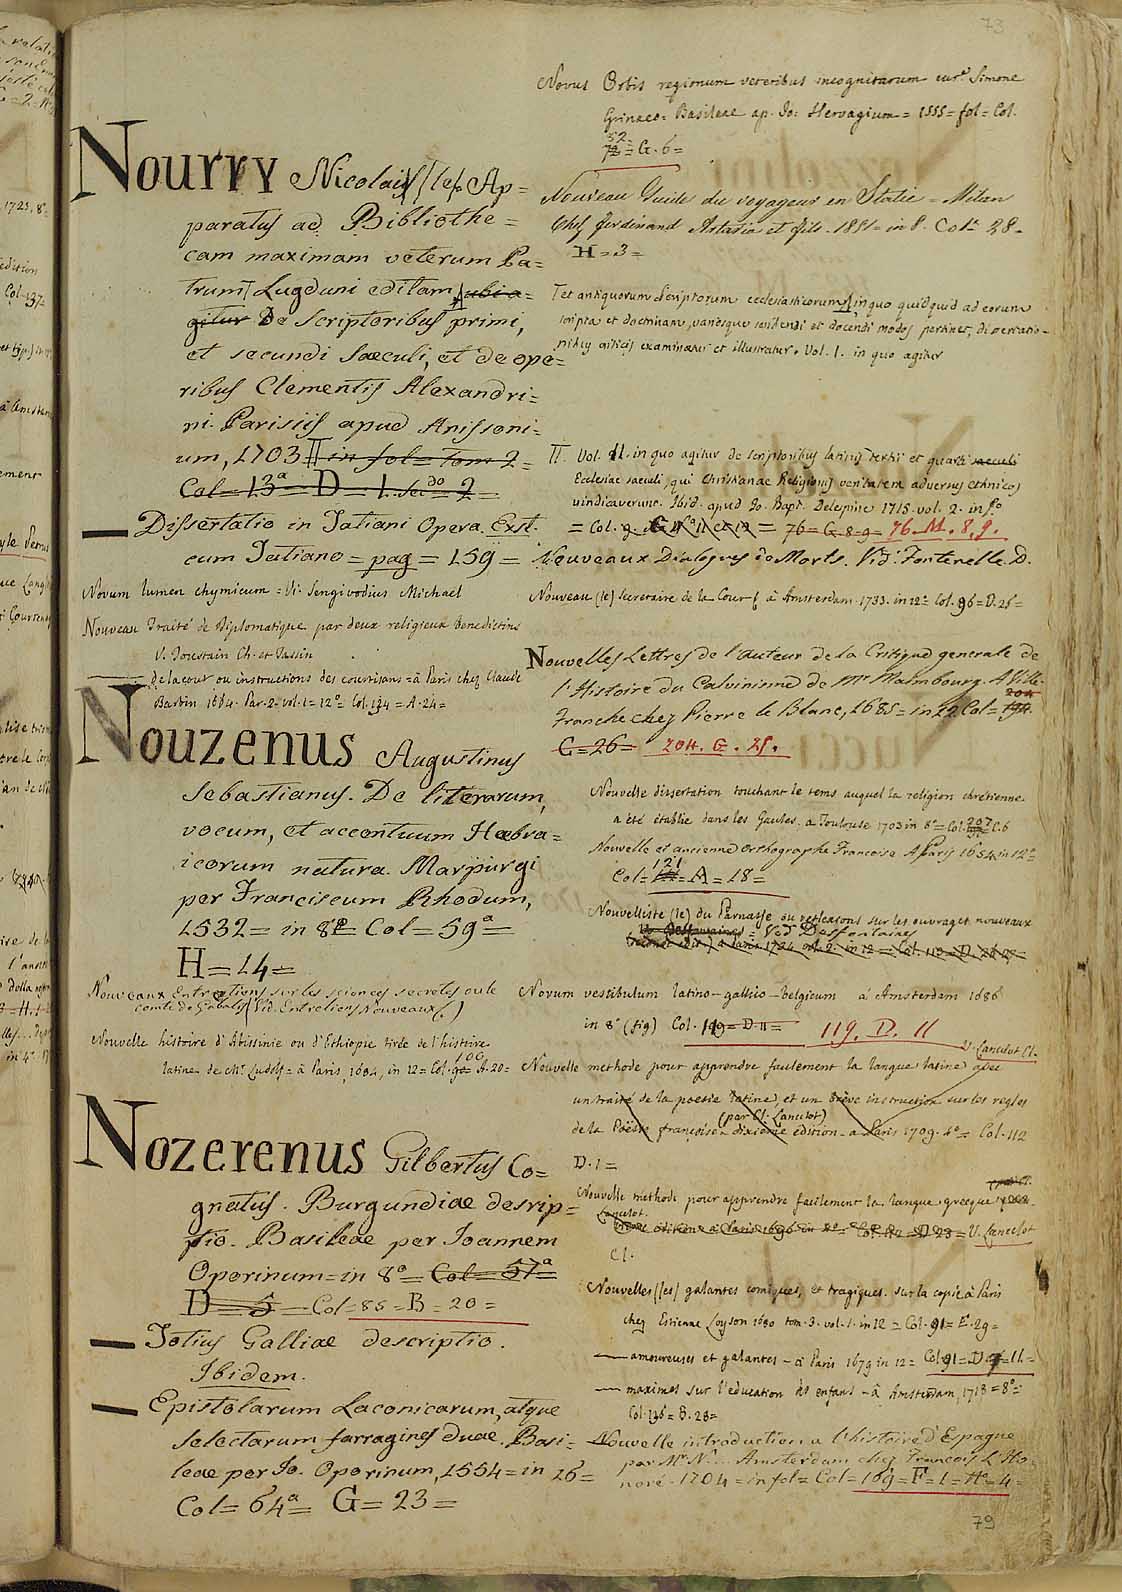 73
Nourry Nicolaus (le). Ap=
paratus ad Bibliothe=
cam maximam veterum Pa=
trum Lugduni editam, ubi a=
gitur De Scriptoribus primi,
et secundi Saeculi, et de ope=
ribus Clementis Alexandri=
ni. Parisiis apud Anissoni=
um, 1703 II in fol = Tom 2 =
Col = 13ª = D = 1. Sec.do = 2 =
— Dissertatio in Tatiani Opera. Ext.
cum Tatiano = pag = 159 =
Novum lumen chymicum = V. Sengivodius Michael
Nouveau Traité de Diplomatique par deux religieux Benedictins
V. Toustain Ch. et Tassin
— de la cour ou instructions des courtisans = à Paris chez Claude
Barbin 1684. Par. 2. vol. 1 = 12º = Col. 134 = A. 24 =
Nouzenus Augustinus
Sebastianus. De literarum,
vocum, et accentuum Hebra=
icorum natura. Marpurgi
per Franciscum Rhodum,
1532 = in 8º = Col = 59ª =
H = 14 =
Nouveaux Entretiens sur les sciences secretes ou le
comte de Gabalis (Vid. Entretiens Nouveaux.)
Nouvelle histoire d'Abissinie ou d'Ethiopie tirée de l'histoire
100
latine de Mr. Ludolf = à Paris, 1684, in 12 = Col. 90 = A. 20 =
Nozerenus Gilbertus Co=
gnatus. Burgundiae descrip=
tio. Basileae per Joannem
Oporinum = in 8º = Col = 57ª =
D = 5 = Col = 85 = B = 20 =
— Totius Galliae descriptio.
Ibidem.
— Epistolarum Laconicarum, atque
selectarum farragines duae. Basi=
leae per Jo. Oporinum, 1554 = in 16 =
Col = 64ª = G = 23 =
Novus Orbis regionum veteribus incognitarum curª Simone
Grinaeo = Basileae ap. Jo: Hervagium = 1555 = fol = Col.
52
72 = G. 6 =
Nouveau Guide du voyageur en Italie = Milan
Chez Ferdinand Artaria et fils. 1851 = in 8. Col = 28 =
H = 3 =
I et antiquorum Scriptorum ecclesiasticorum, in quo quidquid ad eorum
scripta et doctrinam, variosque scribendi et docendi modos pertinet, dissertatio=
nibus criticis examinatur et illustratur. Vol. 1. in quo agitur
II. Vol. II. in quo agitur de scriptoribus latinis tertii et quarti saeculi
Ecclesiae saeculi, qui Christianae Religionis veritatem adversus ethnicos
vindicaverunt. Ibid. apud Jo. Bapt. Delespine 1715. vol. 2. in f.º
= Col. 9. G Nº 11 et 12 = 76 = G. 8. 9 = 76. M. 8. 9.
Nouveaux Dialogues de Morts. Vid. Fontenelle. D.
Nouveau (le) secretaire de la Cour = à Amsterdam. 1733. in 12 = Col. 96 = D. 25 =
Nouvelles Lettres de l'auteur de la Critique generale de
l'Histoire du Calvinisme de Mr Maimbourg. A Ville
204
Franche chez Pierre le Blanc, 1685 = in 12. Col = 194.
C = 26 = 204. G. 25.
Nouvelle dissertation touchant le tems auquel la religion chrétienne
a été établie dans les Gaules. à Toulouse 1703 in 8º = Col. 207 C. 6
Nouvelle et ancienne orthographe Françoise. A Paris 1654 in 12 =
121
Col = = A = 18 =
Nouvelliste (le) du Parnasse ou reflexions sur les ouvrages nouveaux
= Vid Desfontaines
seconde edit.) à Paris 1734 vol. 2. in 12 = Col. 110 = D.
Novum vestibulum latino-gallico-Belgicum à Amsterdam 1686
in 8º (fig) Col. 119 = D. 11 = 119. D. 11
V. Lancelot Cl.
Nouvelle methode pour apprendre facilement la langue latine avec
un traité de la poesie latine, et un brève instruction sur les regles
(par Cl. Lancelot)
de la Poësie françoise = dixieme edition = à Paris 1709. 4º = Col. 112
D. 1 =
Nouvelle methode pour apprendre facilement la langue grecque (par Cl.
Lancelot.
edition à Paris 1696 in 8º = Col. 112 = D 23 = V. Lancelot
Cl.
Nouvelles (les) galantes comiques, et tragiques. sur la copie à Paris
chez Estienne Loyson 1680 tom. 3. vol. 1. in 12 = Col. 91 = E. 29 =
— amoureuses et galantes = à Paris 1679 in 12 = Col 91 = D 11 =
— maximes sur l'education des enfans = à Amsterdam, 1718 = 8º =
Col. 136 = B. 28 =
Nouvelle introduction a l'histoire d'Espagne
par Mr. N... Amsterdam chez François L'Ho=
noré. 1704 = in fol = Col = 169 = F = 1 = Hª = 4 =
79